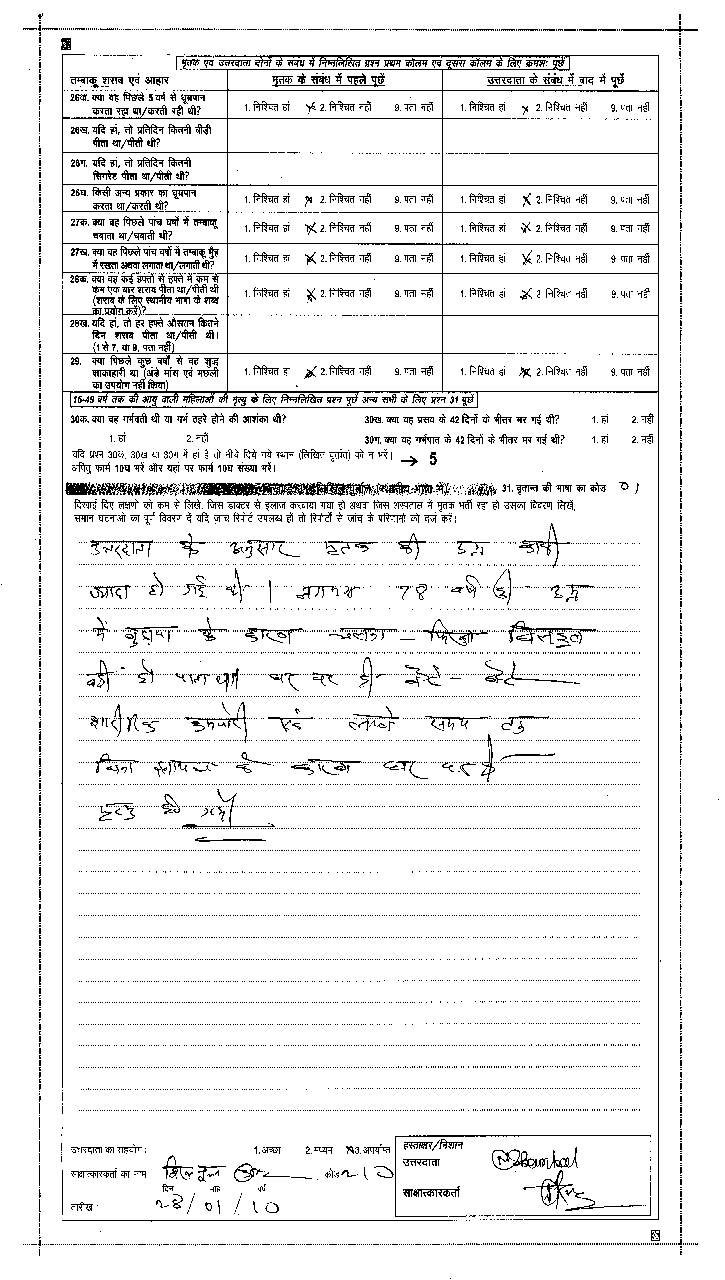 मृतक एवं उत्तरदाता दोनों के संबंध में निम्नलिखित प्रश्न प्रथम कॉलम एवं दूसरा कॉलम के लिए क्रमशः पूछें
तम्बाकू शराब एवं आहार मृतक के संबंध में पहले पूछें उत्तरदाता के संबंध में बाद में पूछें
26क. क्या वह पिछले 5 वर्ष से धूम्रपान करता रहा था/करती रही थी? 1. निश्चित हां 2. निश्चित नहीं 9. पता नहीं 1. निश्चित हां 2. निश्चित नहीं 9. पता नहीं
26ख. यदि हां, तो प्रतिदिन कितनी बीड़ी पीता था/पीती थी?
26ग. यदि हां, तो प्रतिदिन कितनी सिगरेट पीता था/पीती थी?
26घ. किसी अन्य प्रकार का धूम्रपान करता था/करती थी? 1. निश्चित हां 2. निश्चित नहीं 9. पता नहीं 1. निश्चित हां 2. निश्चित नहीं 9. पता नहीं
27क. क्या वह पिछले पांच वर्षों में तम्बाकू चबाता था/चबाती थी? 1. निश्चित हां 2. निश्चित नहीं 9. पता नहीं 1. निश्चित हां 2. निश्चित नहीं 9. पता नहीं
27ख. क्या वह पिछले पांच वर्षों में तम्बाकू मुँह में रखता अथवा लगाता था/लगाती थी? 1. निश्चित हां 2. निश्चित नहीं 9. पता नहीं 1. निश्चित हां 2. निश्चित नहीं 9. पता नहीं
28क. क्या वह कई हफ्तों से हफ्ते में कम से कम एक बार शराब पीता था/पीती थी (शराब के लिए स्थानीय भाषा के शब्द का प्रयोग करें)? 1. निश्चित हां 2. निश्चित नहीं 9. पता नहीं 1. निश्चित हां 2. निश्चित नहीं 9. पता नहीं
28ख. यदि हां, तो हर हफ्ते औसतन कितने दिन शराब पीता था/पीती थी। (1 से 7, या 9, पता नहीं)
29. क्या पिछले कुछ वर्षों से वह शुद्ध शाकाहारी था (अंडे मांस एवं मछली का उपयोग नहीं किया) 1. निश्चित हां 2. निश्चित नहीं 9. पता नहीं 1. निश्चित हां 2. निश्चित नहीं 9. पता नहीं
15-49 वर्ष तक की आयु वाली महिलाओं की मृत्यु के लिए निम्नलिखित प्रश्न पूछें अन्य सभी के लिए प्रश्न 31 पूछें
30क. क्या वह गर्भवती थी या गर्भ ठहरे होने की आशंका थी? 30ख. क्या वह प्रसव के 42 दिनों के भीतर मर गई थी? 1. हां 2. नहीं
1. हां 2. नहीं 30ग. क्या वह गर्भपात के 42 दिनों के भीतर मर गई थी? 1. हां 2. नहीं
यदि प्रश्न 30क, 30ख या 30ग में हां है तो नीचे दिये गये स्थान (लिखित वृतांत) को न भरें। → 5
अपितु फार्म 10घ भरें और यहां पर फार्म 10घ संख्या भरें।
31. वृतान्त की भाषा का कोड 01
दिखाई दिए लक्षणों को क्रम से लिखे, जिस डाक्टर से इलाज करवाया गया हो अथवा जिस अस्पताल में मृतक भर्ती रहा हो उसका विवरण लिखें,
समान घटनाओं का पूर्ण विवरण दें यदि जांच रिपोर्ट उपलब्ध हो तो रिपोर्टों से जांच के परिणामों को दर्ज करें।
उत्तरदाता के अनुसार मृतक की उम्र काफी
ज्यादा हो गई थी। लगभग 78 वर्ष की उम्र
में बुढ़ापा के कारण चलना - फिरना बिलकुल
नहीं हो पाता था घर पर ही लेटे - लेटे
शारीरिक कमजोरी एवं लम्बे समय तक
बिना के कारण घर पर ही
मृत्यु हो गयी
उत्तरदाता का सहयोग : 1. अच्छा 2. मध्यम 3. अपर्याप्त
साक्षात्कारकर्ता का नाम कोड 210
दिन माह वर्ष
तारीख : 28/01/10
हस्ताक्षर/निशान
उत्तरदाता
साक्षात्कारकर्ता